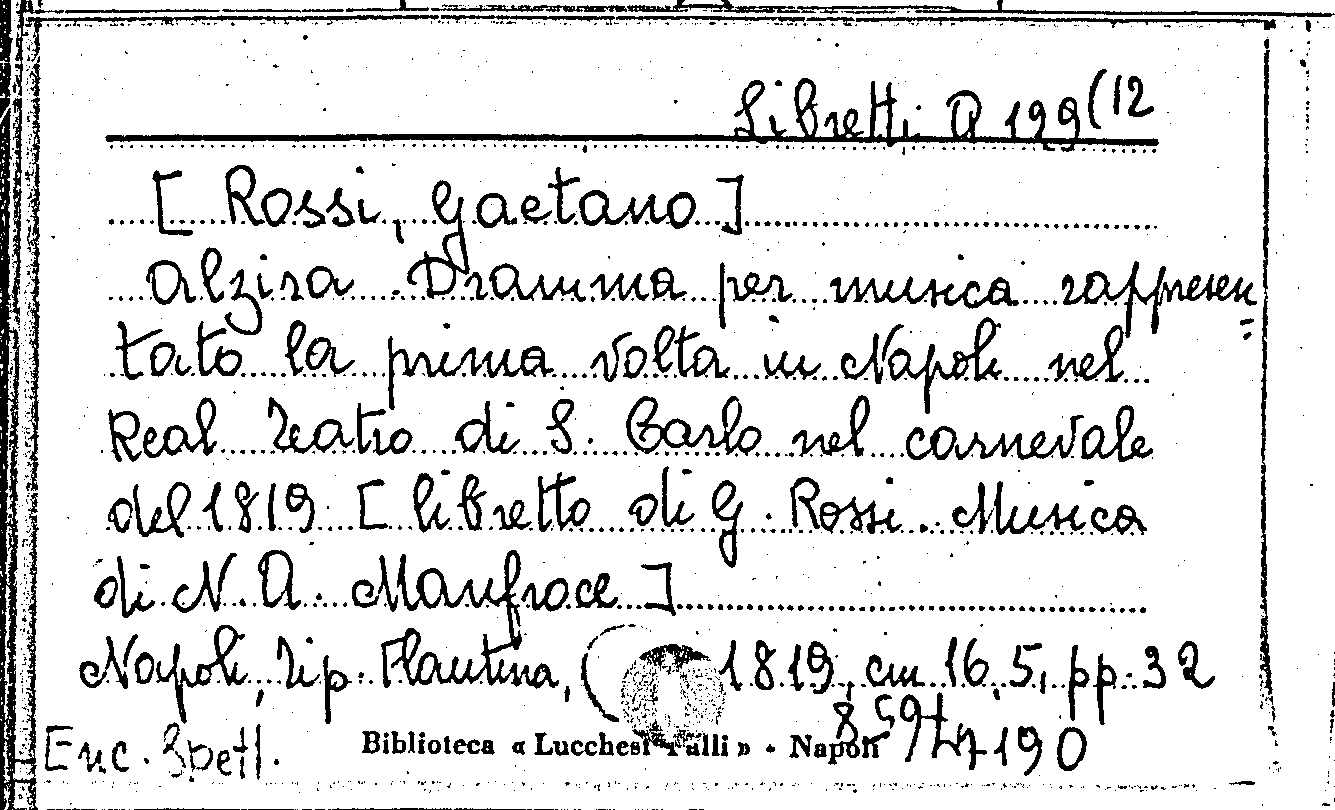 Libretti A 199(12
[ Rossi, Gaetano ]
Alzira. Dramma per musica rappresen=
tato la prima volta in Napoli nel
Real Teatro di S. Carlo nel carnevale
del 1819 [ libretto di G. Rossi. Musica
di N. A. Manfroce ]
Napoli, Tip. Flautina, 1819, cm 16,5, pp. 32
Enc. Spett. Biblioteca « Lucchesi Palli » - Napoli